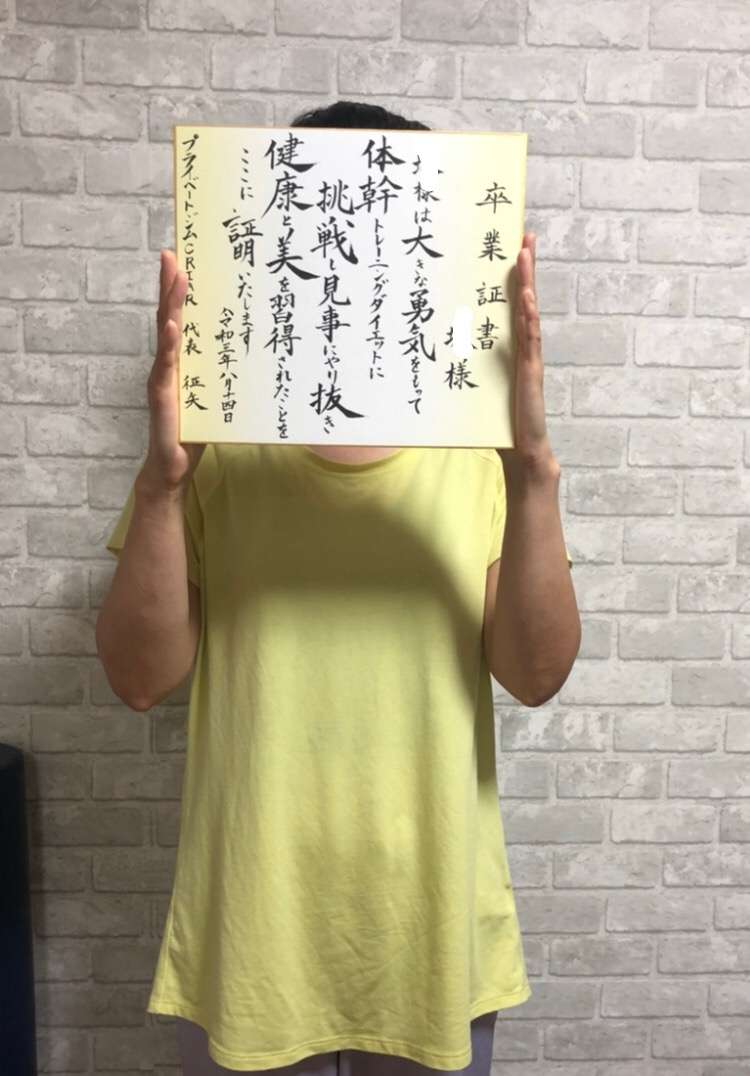 卒業証書
様
様は大きな勇気をもって
体幹トレーニングダイエットに
挑戦し見事にやり抜き
健康と美を習得されたことを
ここに証明いたします
令和三年八月十四日
プライベートジムCRIAR 代表 征矢